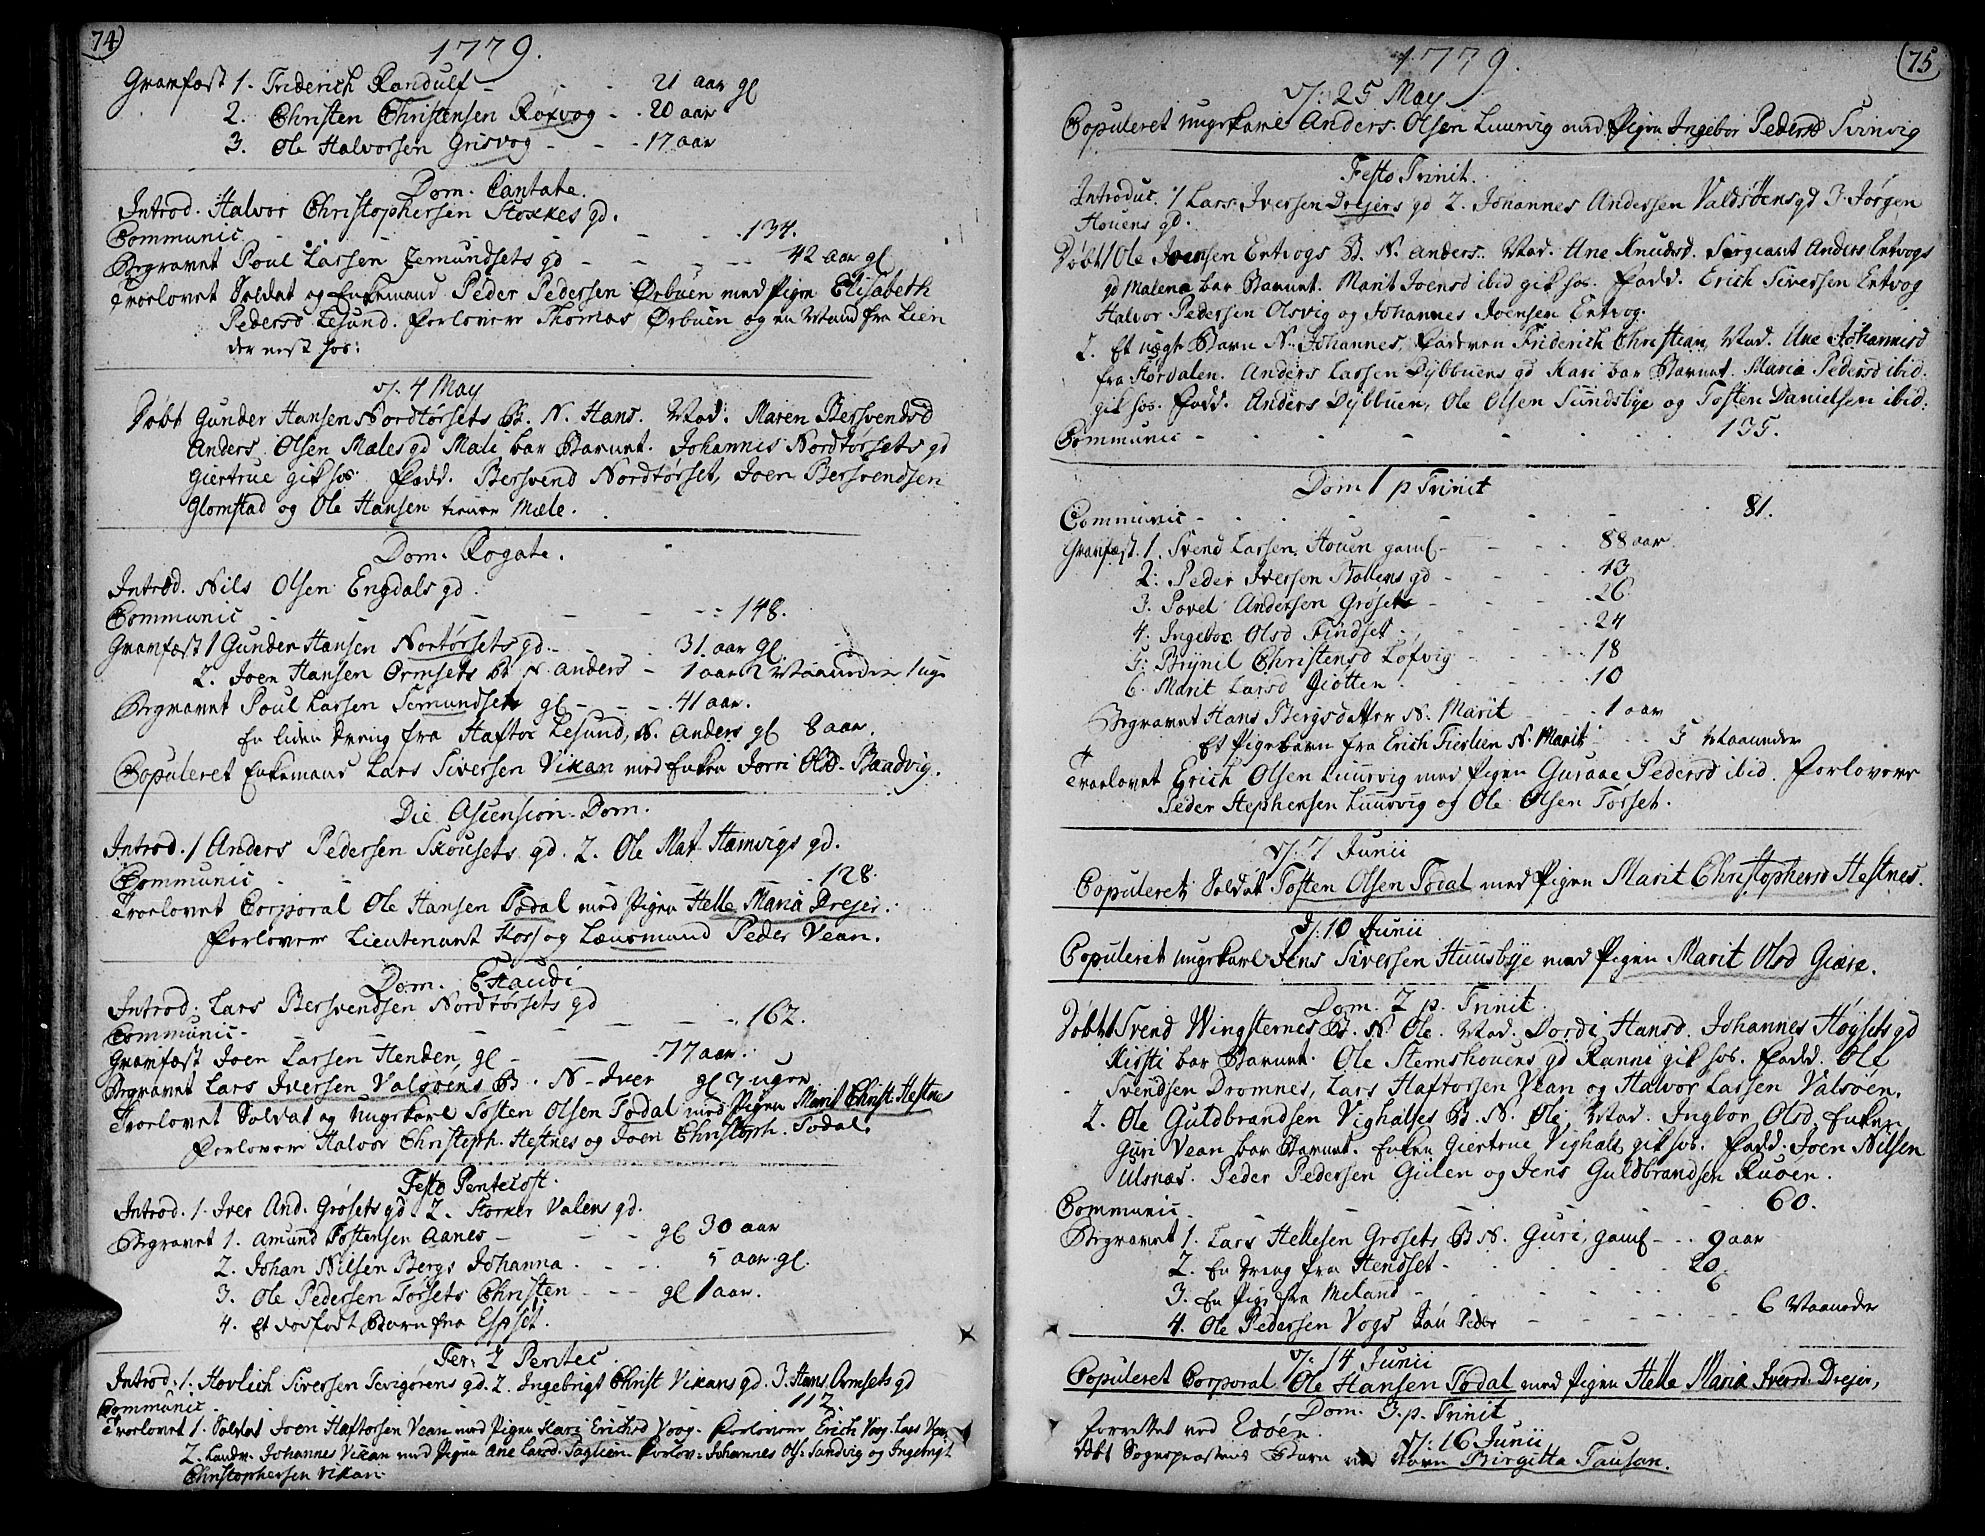 74
1779.
Gravfæst 1. Friderich Randulf - - - 21 aar gl
2. Christen Christensen Roxvog - - 20 aar
3. Ole Halvorsen Grisvog - - - 17 aar
Dom. Cantate.
Introd. Halvor Christophersen Stokkes gd.
Communic - - - - - - - 134.
Begravet Poul Larsen Semundsets gd - - - - 42 aar gl
Troelovet Soldat og Enkemand Peder Pedersen Ørbuen med Pigen Elisabeth
Pedersd Lesund. Forlovere Thomas Ørbuen og en Mand fra Lien
der nest hos:
d. 4 May
Døbt Gunder Hansen Nordtørsets B. N. Hans. Mad. Maren Bersvendsd
Anders Olsen Mæles gd Mali bar Barnet. Johannis Nordtørsets gd
Giertrue gik hos. Fadd. Bersvend Nordtørset, Joen Bersvendsen
Glomstad og Ole Hansen Mæle.
Dom. Rogate.
Introd. Nils Olsen Engdals gd.
Communic - - - - - - - 148.
Gravfæst 1 Gunder Hansen Nortørsets gd. - - - 31. aar gl.
2. Joen Hansen Ormsets B. N. Anders - 1 aar 2 Maaneder 1 uge
Begravet Poul Larsen Semundset gl - - - 41 aar.
En liden Dreng fra Haftor Lesund, N. Anders gl 8 aar.
Copuleret Enkemand Lars Siversen Vikan med Enken Jorri Olsd. Baadvig.
Die Ascension. Dom.
Introd. 1 Anders Pedersen Skousets gd. 2. Ole Mat. Hamvigs gd.
Communic - - - - - - - 128.
Troelovet Corporal Ole Hansen Todal med Pigen Helle Maria Drejer.
Forlovere Lieutenant Hoss og Lænsmand Peder Vean.
Dom. Exaudi
Introd. Lars Bersvendsen Nordtørsets gd
Communic - - - - - - - 162.
Gravfæst Joen Larsen Henden, gl - - - 77 aar.
Begravet Lars Iversen Valsøens B. N. Iver gl 3 uger
Troelovet Soldat og Ungekarl Tosten Olsen Todal med Pigen Marit Christ. Hestnes
Forlovere Halvor Christoph. Hestnes og Joen Christoph. Todal.
Festo Pentecost.
Introd. 1. Iver And. Grøsets gd. 2. Storker Valens gd.
Begravet 1. Amund Tostensen Aanes - - - gl 30 aar
2. Johan Nilsen Bergs Johanna - - - 5 aar gl.
3. Ole Pedersen Torsets Christen - - - gl 1 aar.
4. Et dødfødt Barn fra Espset.
Fer: 2 Pentec.
Introd. 1. Hovlich Siversen Tevigørens gd. 2. Ingebrigt Christ Vikans gd. 3. Hans Ormsets gd
Communic - - - - - - - 112.
Troelovet 1. Soldat Joen Haftorsen Vean med Pigen Kari Erichsd Voog. Forlovere Erich Voog. Lars Vean
2. Landv. Johannes Vikan med Pigen Ane Larsd. Taglien. Forlov. Johannes Ols: Sandvig og Ingebrigt
Christophersen Vikan.
75
1779.
d. 25 May
Copuleret Ungekarl Anders Olsen Luurvig med Pigen Ingebor Pedersd Svinvig
Festo Trinit.
Introduc. 1 Lars Iversen Drejers gd 2. Johannes Andersen Valdstens gd 3. Jørgen
Houens gd.
Døbt 1 Ole Joensen Entvogs B. N. Anders. Mad. Ane Knudsd. Sergeant Anders Entvogs
gd Malena bar Barnet. Marit Joensd ibid gik hos. Fadd. Erich Siversen Entvog
Halvor Pedersen Olsvig og Johannes Joensen Entvog.
2. Et uægt Barn N. Johannes, Faderen Friderich Christian, Mad. Ane Johannisd
fra Størdalen. Anders Larsen Dybbuens gd Kari bar Barnet. Maria Pedersd ibid.
gik hos. Fadd. Anders Dybbuen, Ole Olsen Sundsbye og Tosten Danielsen ibid:
Communic - - - - - - - 135.
Dom 1 p Trinit
Communic - - - - - - - 81.
Gravfæst. 1. Svend Larsen Houen gaml - - - 88 aar
2. Peder Iversen Stollens gd - - - 13
3. Povel Andersen Grøset - - - 26
4. Ingebor Olsd Findset - - - 24
5. Brynel Christensd Lofvig - - - 18
6. Marit Larsd Giotten - - - 10
Begravet Hans Bergs datter N. Marit - - 1 aar
Et Pigebarn fra Erich Fieslien N. Marit - - 5 Maaneder
Troelovet Erich Olsen Luurvig med Pigen Guraae Pedersd ibid. Forlovere
Peder Stephensen Luurvig og Ole Olsen Torset.
d. 7 Junii
Copuleret Soldat Tosten Olsen Todal med Pigen Marit Christophersd Hestnes.
d. 10 Junii
Copuleret Ungekarl Jens Siversen Huusbye med Pigen Marit Olsd Giære.
Dom. 2 p. Trinit.
Døbt 1 Svend Wingsternes B. N. Ole. Mad. Dordi Hansd. Johannes Høysets gd
Kirsti bar Barnet. Ole Stemshouens gd Ranni gik hos. Fadd. Ole
Svendsen Dromnes, Lars Haftorsen Vean og Halvor Larsen Valsøen.
2. Ole Guldbrandsen Vighalses B. N. Ole. Mad. Ingbor Olsd. Enken
Guri Vean bar Barnet. Enken Giertrue Vighals gik hos. Fadd. Joen Nilsen
Ulsnæs. Peder Pedersen Gjelen og Jens Guldbrandsen Ruøen.
Communic - - - - - - - 60.
Begravet 1. Lars Hellesen Grøsets B N. Guri, gaml - - 9 aar
2. En Dreng fra Hendset - - - 20
3. En Pige fra Meland - - - 6
4. Ole Pedersen Vogs Søn Peder - - - 6 Maaneder
d. 14 Junii
Copuleret Corporal Ole Hansen Todal med Pigen Helle Maria Iversd. Drejer,
Dom. 3. p. Trinit
forrettet ved Edøen.
d. 16 Junii
Døbt Sognepræstens Barn ved Navn Birgitta Tausan.